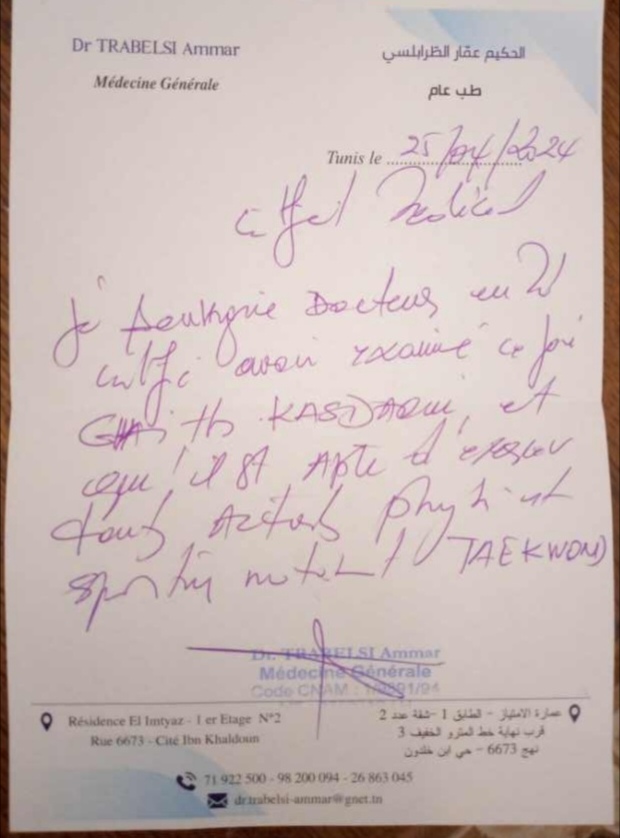 Dr TRABELSI Ammar
الحكيم عمّار الطرابلسي
Médecine Générale
طب عام
Tunis le 25/04/2024
Médical
Je soussigné Docteur en
avoir examiné ce jour
KASDAOUI, et
qu'il est Apte d'exercer
sportive notamment TAEKWONDO
Dr. TRABELSI Ammar
Médecine Générale
Code CNAM :
Résidence El Imtyaz - 1 er Etage N°2
Rue 6673 - Cité Ibn Khaldoun
عمارة الامتياز - الطابق 1 - شقة عدد 2
قرب نهاية خط المترو الخفيف 3
نهج 6673 - حي ابن خلدون
71 922 500 - 98 200 094 - 26 863 045
dr.trabelsi-ammar@gnet.tn